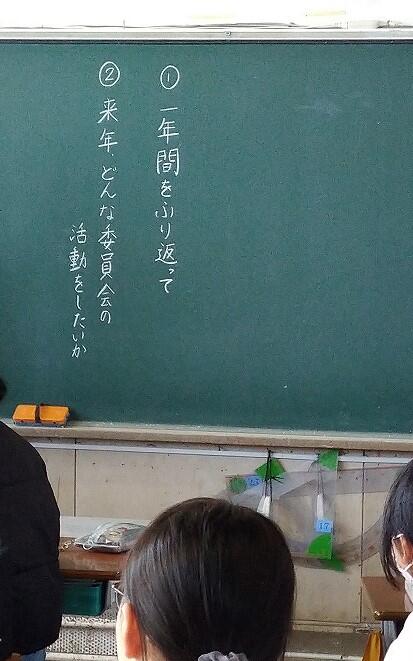 ① 一年間をふり返って
② 来年、どんな委員会の
活動をしたいか
17